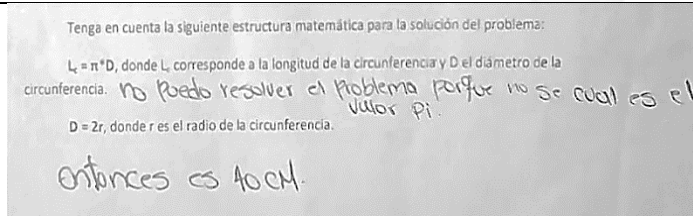 Tenga en cuenta la siguiente estructura matemática para la solución del problema:
L = π*D, donde L corresponde a la longitud de la circunferencia y D el diámetro de la
circunferencia. no puedo resolver el problema porque no se cual es el
valor Pi.
D = 2r, donde r es el radio de la circunferencia.
entonces es 40 CM.